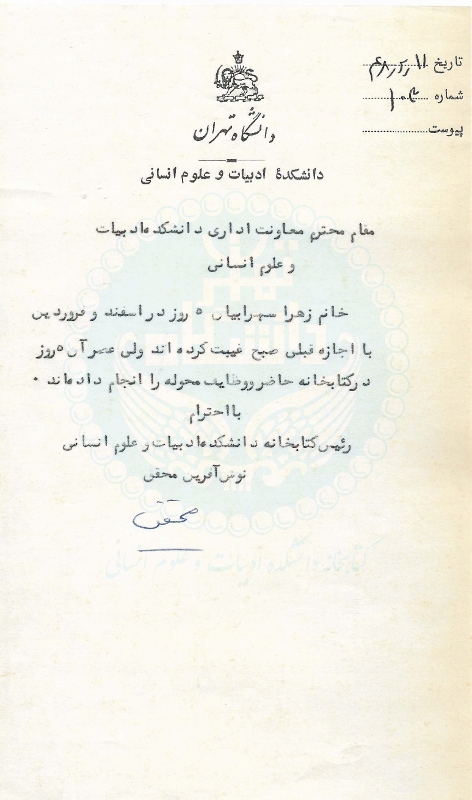 تاریخ ۴۸٫۲٫۱۱
شماره ۱۰۳
پیوست
دانشگاه تهران
دانشکدهٔ ادبیات و علوم انسانی
مقام محترم معاونت اداری دانشکده ادبیات
و علوم انسانی
خانم زهرا سهرابیان ۵ روز در اسفند و فروردین
با اجازه قبلی صبح غیبت کرده اند ولی عصر آن ۵ روز
در کتابخانه حاضر و وظایف محوله را انجام داده‌اند ۰
با احترام
رئیس کتابخانه دانشکده ادبیات و علوم انسانی
نوش آفرین محقق
محقق
کتابخانه دانشکده ادبیات و علوم انسانی